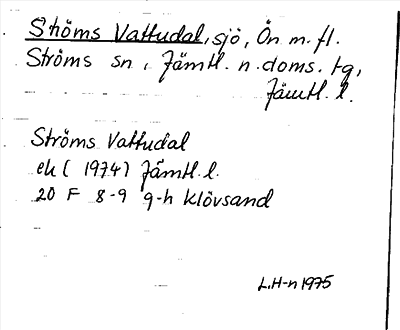 Ströms Vattudal, sjö, Ön m.fl.
Ströms sn, Jämtl. n. doms. tg,
Jämtl. l.
Ströms Vattudal
ek (1974) Jämtl. l.
20 F 8-9 g-h Klövsand
L.H-n 1975